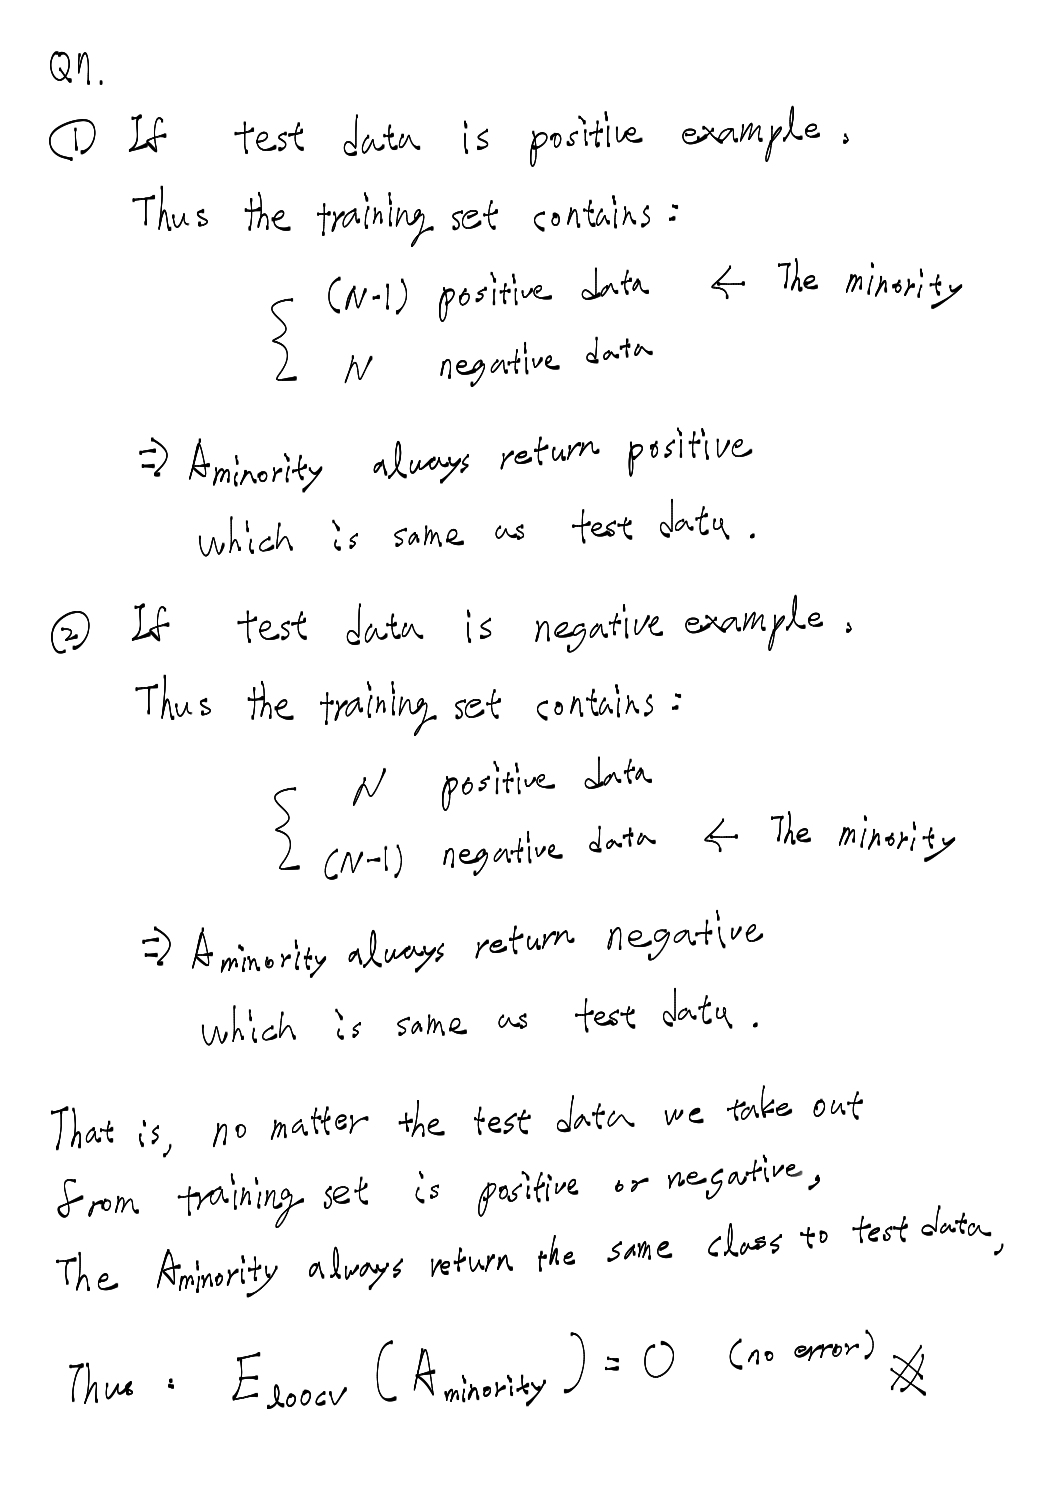 Q7.
① If test data is positive example,
Thus the training set contains:
{ (N-1) positive data ← The minority
N negative data
⇒ Aminority always return positive
which is same as test data.
② If test data is negative example,
Thus the training set contains:
{ N positive data
(N-1) negative data ← The minority
⇒ Aminority always return negative
which is same as test data.
That is, no matter the test data we take out
from training set is positive or negative,
The Aminority always return the same class to test data,
Thus: Eloocv (Aminority) = 0 (no error) ※